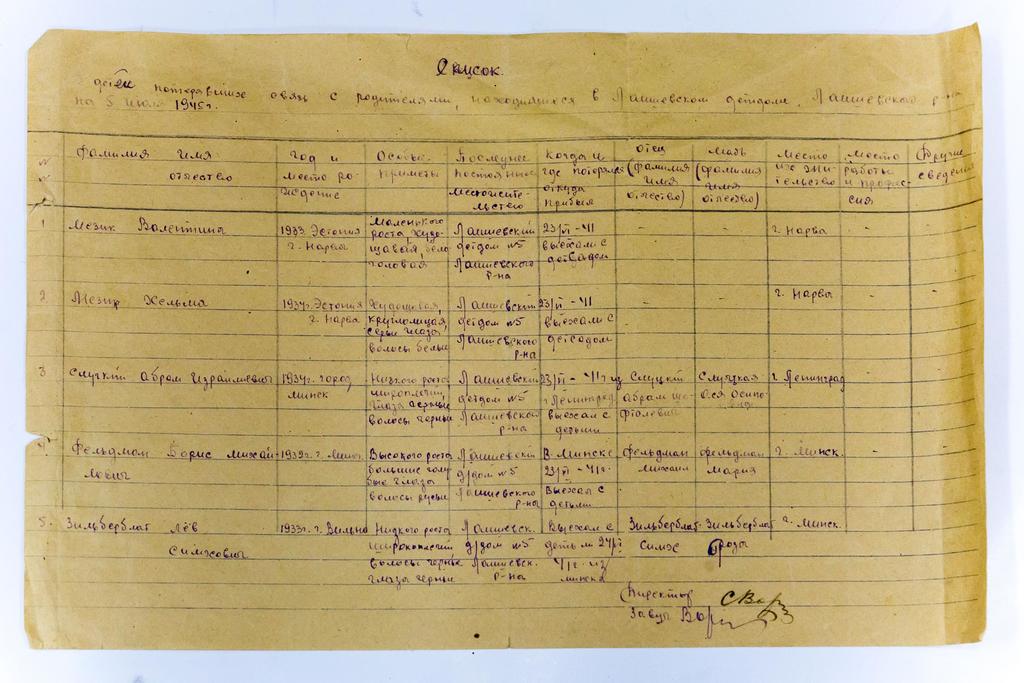 Список
детей потерявших связь с родителями, находящихся в Лаишевском детдоме, Лаишевского р-на
на 5 1945г.
Фамилия имя отчество
год и место рождение
Особые приметы
Последнее постоянные местожительство
Когда и где потерялся откуда прибыл
отец (фамилия имя отчество)
мать (фамилия имя отчество)
Место их жительство
Место работы и профессия
Другие сведения
1 Мезик Валентина
1933 Эстония г. Нарва
Маленького роста, худощавая, белоголовая
Лаишевский детдом №5 Лаишевского р-на
23/VI - 41 выехали с детсадом
- -
г. Нарва
- -
2 Мезик Хельма
1937г. Эстония г. Нарва
Худощавая, круглолицая, серые глаза, волосы белые
Лаишевский детдом №5 Лаишевского р-на
23/VI - 41 выехали с детсадом
- -
г. Нарва
- -
3 Слуцкий Абрам Израилиевич
1934г. город Минск
Низкого роста широколицый глаза черные волосы черные
Лаишевский детдом №5 Лаишевской р-на
23/VI - 41г. из г. Ленинград выехал с детьми
Слуцкий абрам
Слуцкая ася
г. Ленинград
-
4. Фельдман Борис Михайлович
1932г. г. Минск
Высокого роста большие голубые глаза волосы русые
Лаишевский д/дом №5 Лаишевского р-на
В. Минске 23/VI - 41г. Выехал с детьми
Фельдман Михаил
Фельдман Мария
г. Минск.
-
5. Зильберблат Лёв Симхович
1933г. г. Вильно
Низкого роста широколицый волосы черные глаза черные
Лаишевск. д/дом №5 Лаишевск. р-на
Выехал с детьми 24/VI 41г. из Минска
Зильберблат Симхе
Зильберблат Роза
г. Минск.
-
Директор
Завуч